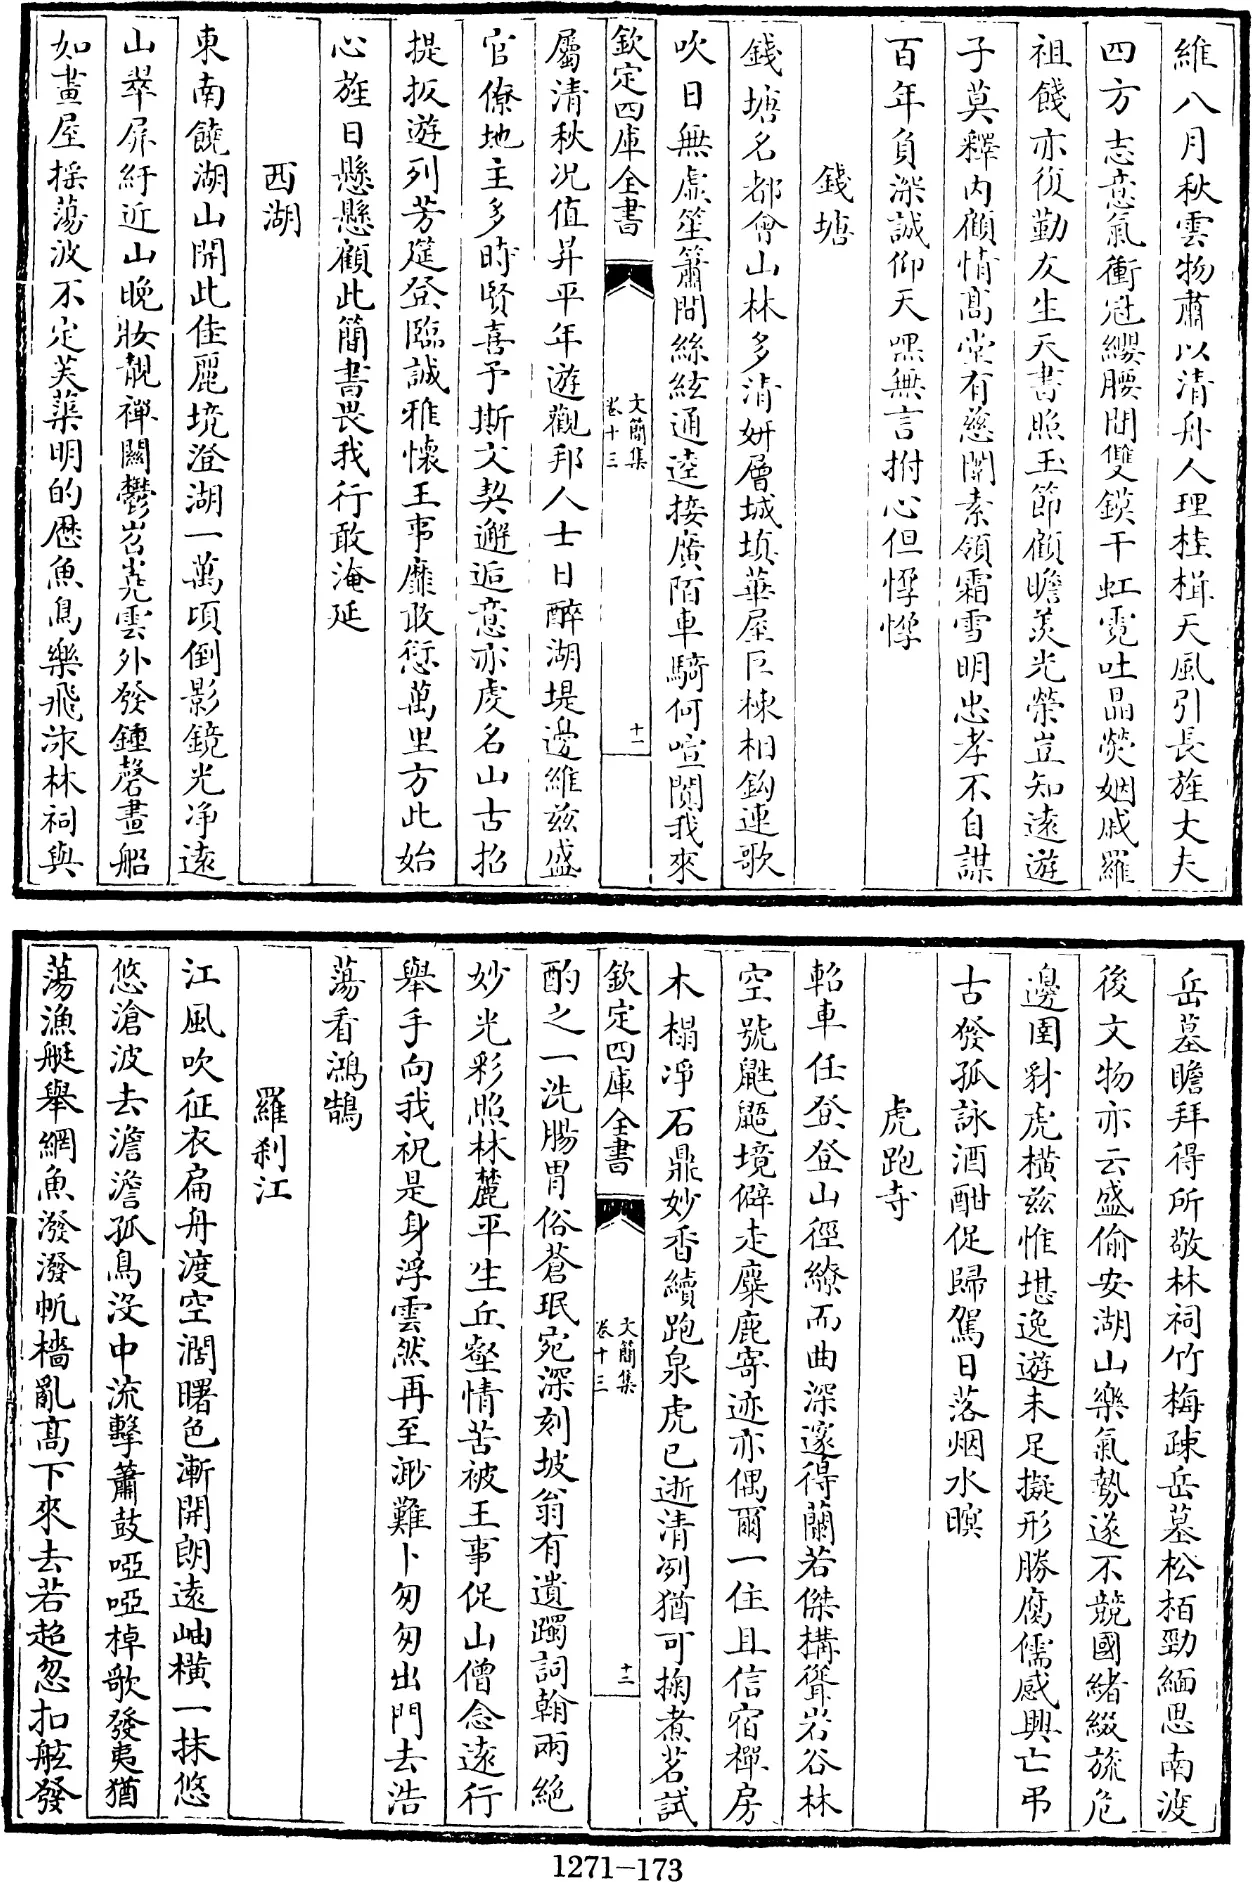 維八月秋雲物肅以清舟人理桂楫天風引長旌丈夫
四方志意氣衝冠纓腰間雙鏌干虹霓吐晶熒姻戚羅
祖餞亦復勤友生天書照玉節顧瞻羨光榮豈知逺遊
子莫釋内顧情髙堂有慈闈素領霜雪明忠孝不自謀
百年負深誠仰天嘿無言拊心但悸悸
錢塘
錢塘名都㑹山林多清妍層城填華屋巨棟相鈎連歌
吹日無虚笙簫間絲絃通逵接廣陌車騎何喧闐我來
欽定四庫全書
文簡集
卷十三
十一
屬清秋况值昇平年遊觀邦人士日醉湖堤邊維兹盛
官僚地主多時賢喜予斯文契邂逅意亦䖍名山古招
提扳遊列芳筵登臨誠雅懷王事靡敢愆萬里方此始
心旌日懸懸顧此簡書畏我行敢淹延
西湖
東南饒湖山開此佳麗境澄湖一萬頃倒影鏡光净逺
山翠屏紆近山晩妝靚禪闗鬱岧嶤雲外發鍾磬畫船
如畫屋揺蕩波不定芙蕖明的厯魚鳥樂飛泳林祠與
岳墓瞻拜得所敬林祠竹梅疎岳墓松栢勁緬思南渡
後文物亦云盛偷安湖山樂氣勢遂不競國緒綴旒危
邊圉豺虎横兹惟堪逸遊未足擬形勝腐儒感興亡弔
古發孤詠酒酣促歸駕日落烟水暝
虎跑寺
軺車任登登山徑繚而曲深邃得蘭若傑構聳岩谷林
空號鼪鼯境僻走麋鹿寄迹亦偶爾一住且信宿禪房
木榻凈石鼎妙香續跑泉虎已逝清冽猶可掬煮茗試
欽定四庫全書
文簡集
卷十三
十二
酌之一洗腸胃俗蒼珉宛深刻坡翁有遺躅詞翰兩絶
妙光彩照林麓平生丘壑情苦被王事促山僧念逺行
舉手向我祝是身浮雲然再至渺難卜匆匆出門去浩
蕩看鴻鵠
羅刹江
江風吹征衣扁舟渡空濶曙色漸開朗逺岫横一抹悠
悠滄波去澹澹孤鳥没中流擊簫鼓啞啞棹歌發夷猶
蕩漁艇舉網魚潑潑帆檣亂髙下來去若超忽扣舷發
1271-173